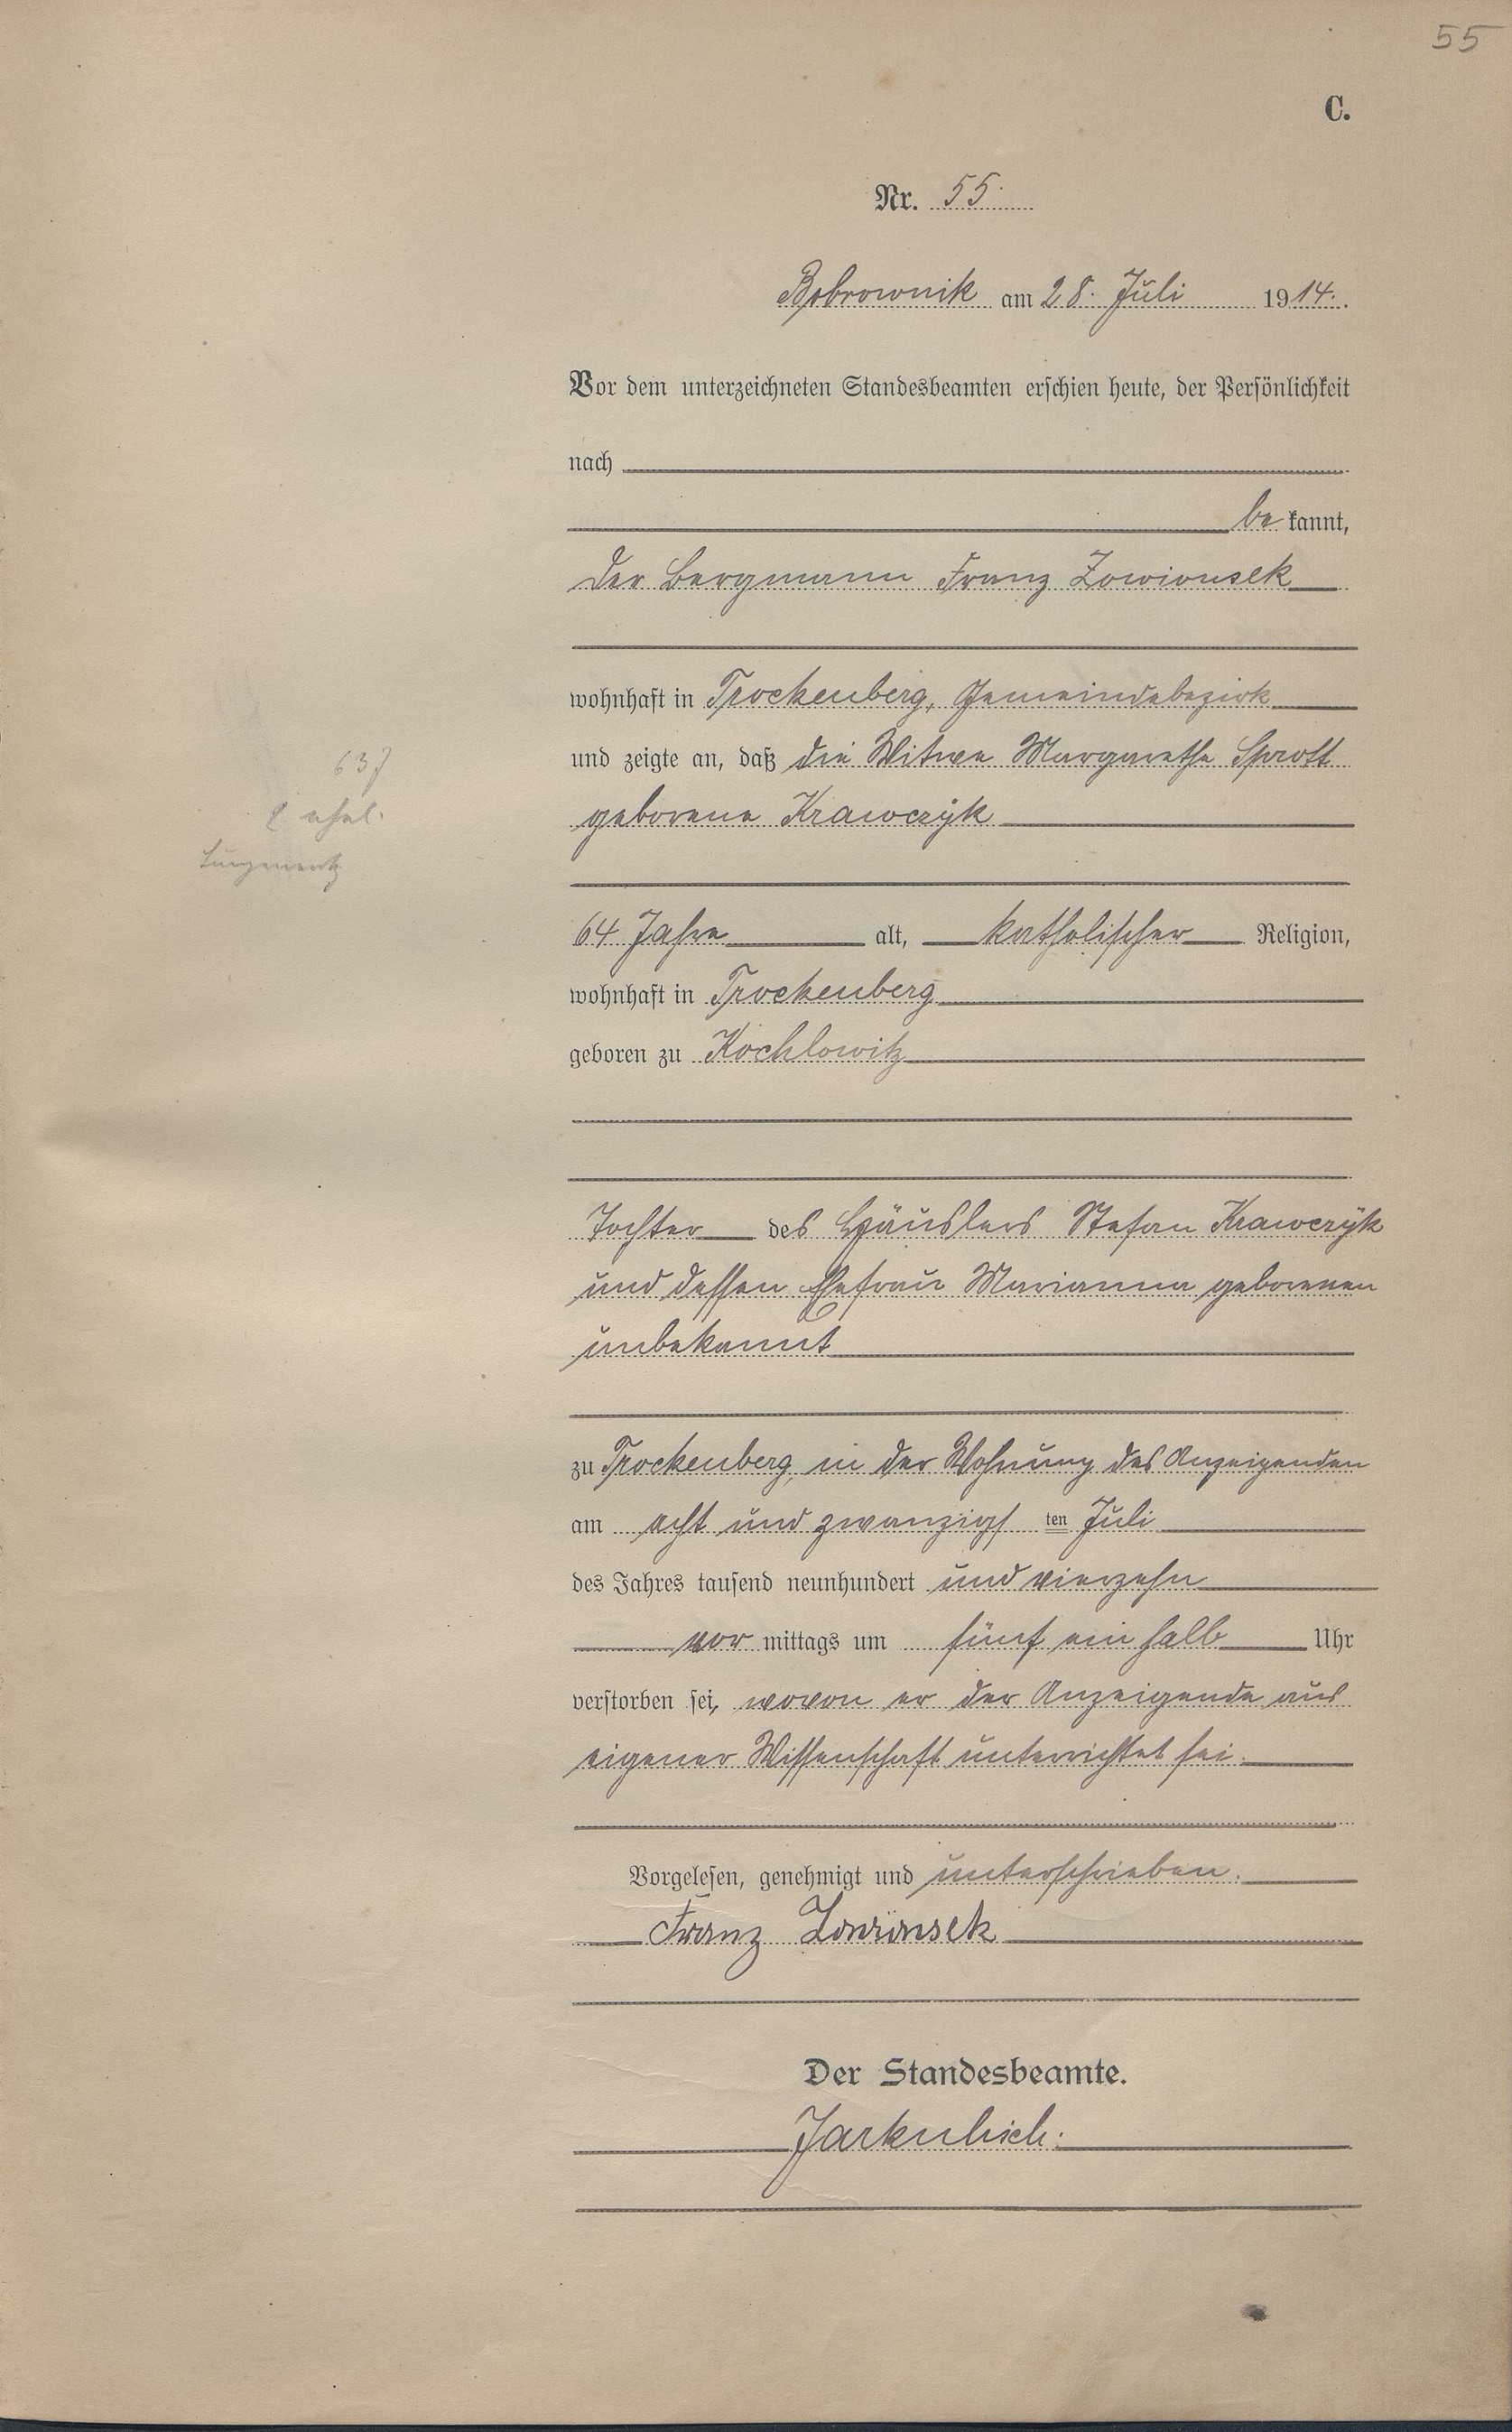 55
C.
Nr. 55.
Bobrownik am 28. Juli 1914.
Vor dem unterzeichneten Standesbeamten erschien heute, der Persönlichkeit
nach
be kannt,
der Bergmann Franz Zowionsek
wohnhaft in Trockenberg, Gemeindebezirk
und zeigte an, daß die Witwe Margarethe Sprott
geborene Krawczyk
637
ehel.
64 Jahre alt, katholischer Religion,
wohnhaft in Trockenberg
geboren zu Kochlowitz
Tochter des Häuslers Stefan Krawczyk
und dessen Ehefrau Marianna geborenen
unbekannt
zu Trockenberg, in der Wohnung des Anzeigenden
am acht und zwanzigs ten Juli
des Jahres tausend neunhundert und vierzehn
vor mittags um fünf ein halb Uhr
verstorben sei, wovon er der Anzeigende aus
eigener Wissenschaft unterrichtet sei.
Vorgelesen, genehmigt und unterschrieben.
Franz Zowionsek
Der Standesbeamte.